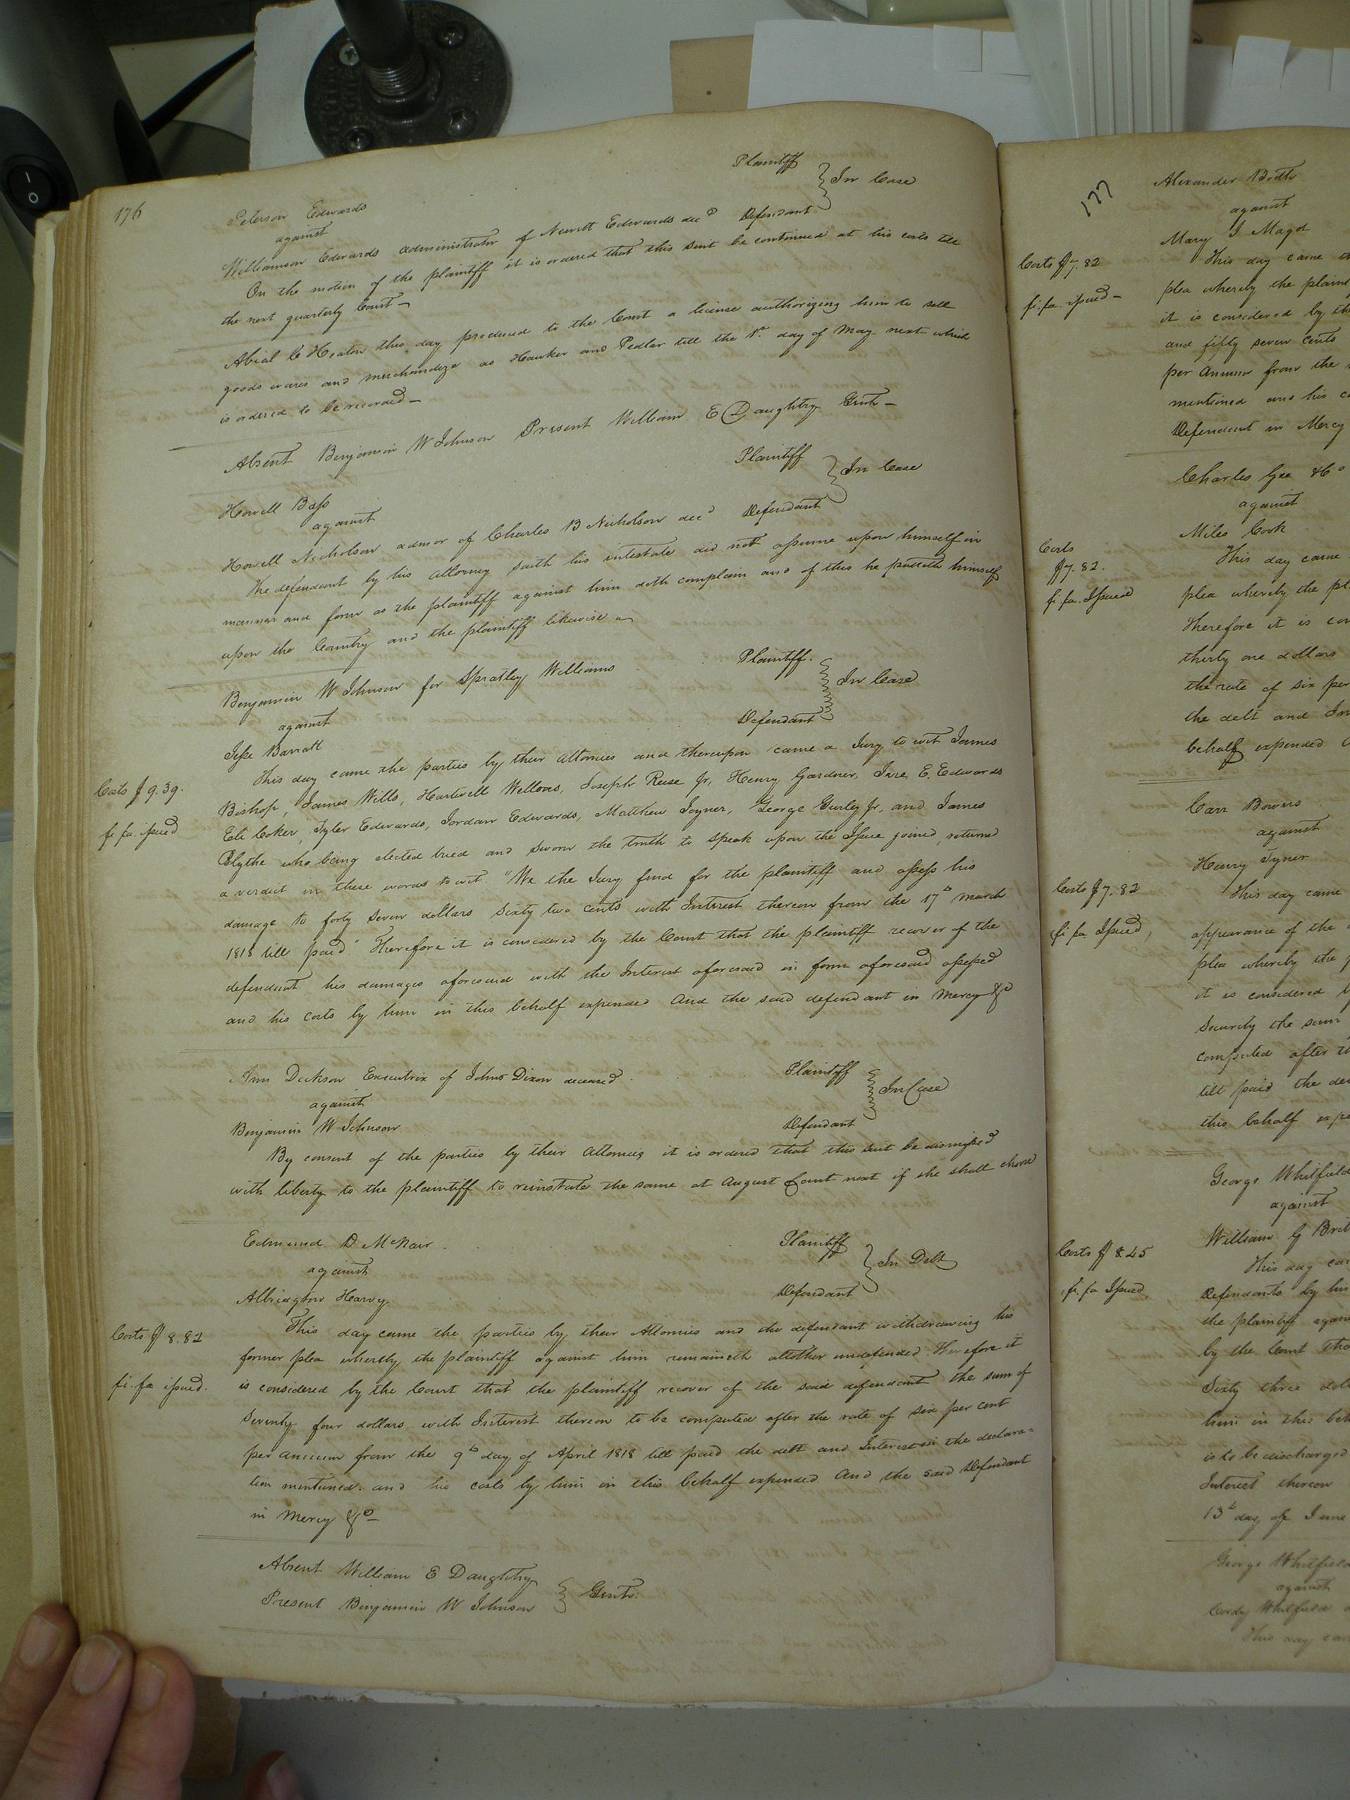 176
Peterson Edwards
against
Plaintiff
In Case
Williamson Edwards administrator of Newitt Edwards decd Defendant
On the motion of the plaintiff it is ordered that this suit be continued at his costs till
the next quarterly Court
Abial C Heaton this day produced to the Court a license authorizing him to sell
goods wares and merchandize as Hawker and Pedler till the 1st day of May next which
is ordered to be recorded
Absent Benjamin W Johnson Present William E Daughtry Gent
Howell Bass
against
Plaintiff
In Case
Howell Nicholson admor of Charles B Nicholson decd Defendant
The defendant by his attorney saith his intestate did not assume upon himself in
manner and form as the plaintiff against him doth complain and of this he putteth himself
upon the Country and the plaintiff likewise
Benjamin W Johnson for Spratley Williams Plaintiff
against
In Case
Jesse Barratt
Defendant
Costs $9.39.
fi. fa. issued
This day came the parties by their attornies and thereupon came a Jury to wit James
Bishop, James Wills, Hartwell Wellons, Joseph Reese Jr, Henry Gardner, E. Edwards
Eli Coker, Tyler Edwards, Jordan Edwards, Matthew Joyner, George Gurley Jr. and James
Blythe who being elected tried and sworn the truth to speak upon the Issue joined, returned
a verdict in these words to wit "We the Jury find for the plaintiff and assess his
damage to forty seven dollars sixty two cents with Interest thereon from the 17th march
1818 till paid" Therefore it is considered by the Court that the plaintiff recover of the
defendant his damages aforesaid with the Interest aforesaid in form aforesaid assessed
and his costs by him in this behalf expended And the said defendant in Mercy &c
Ann Dickson Executrix of John Dixon deceased Plaintiff
against
In Case
Benjamin W Johnson Defendant
By consent of the parties by their attornies it is ordered that this suit be dismissed
with liberty to the plaintiff to reinstate the same at August Court next if she shall choose
Edmund D McNair Plaintiff
against
In Debt
Albrington Harvy Defendant
Costs $8.82
fi. fa issued.
This day came the parties by their Attornies and the defendant withdrawing his
former plea whereby the plaintiff against him remaineth altother undefended Therefore it
is considered by the Court that the plaintiff recover of the said defendent the sum of
seventy four dollars with Interest thereon to be computed after the rate of six per cent
per annum from the 9th day of April 1818 till paid the debt and Interest in the declara-
tion mentioned. and his costs by him in this behalf expended And the said Defendant
in Mercy &c
Absent William E Daughtry
Present Benjamin W Johnson
Gents.
177
Alexander
against
Mary I
Costs $7.82
fi. fa. issued
This day came
plea whereby the plain
it is considered by the
and fifty seven cents
per Annum from the
mentioned and his
Defendent in Mercy
Charles Gee & Co
against
Miles Cook
Costs
$7.82.
fi. fa. Issued
This day came
plea whereby the pl
Therefore it is con
thirty one dollars
the rate of six per
the debt and In
behalf expended
Carr Bowers
against
Henry Tyner
Costs $7.82
fi fa Issued
This day came
appearance of the
plea whereby the
it is considered
Security the sum
computed after
till paid the de
this behalf expe
George Whitfield
against
William G Brit
Costs $8.45
fi. fa Issued
This day ca
Defendants by his
the plaintiff again
by the Court tha
Sixty three dol
him in this be
is to be discharged
Interest thereon
13th day of June
George Whitfield
against
Whitfield
This day ca